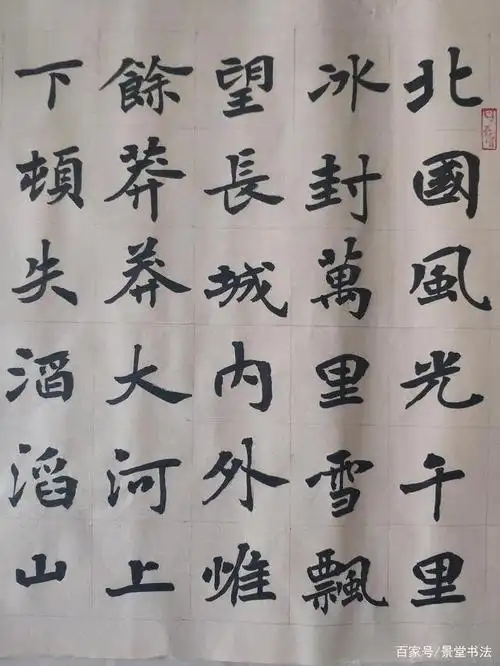 北國風光千里
冰封萬里雪飄
望長城內外惟
餘莽莽大河上
下頓失滔滔山
百家号/景堂书法